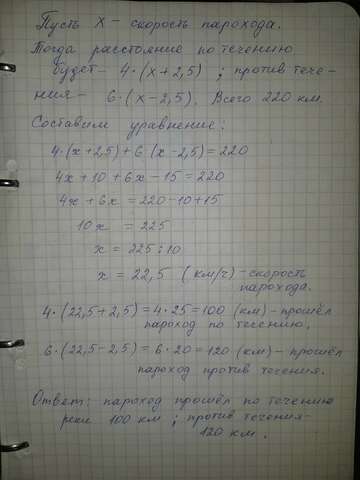 Пусть x – скорость парохода.
Тогда расстояние по течению
будет – 4·(x+2,5) ; против тече-
ния – 6·(x-2,5). Всего 220 км.
Составим уравнение:
4·(x+2,5)+6(x-2,5)=220
4x+10+6x-15=220
4x+6x=220-10+15
10x = 225
x = 225:10
x = 22,5 (км/ч) - скорость
парохода.
4·(22,5+2,5)=4·25=100 (км) - прошёл
пароход по течению.
6·(22,5-2,5)=6·20=120 (км) – прошёл
пароход против течения.
Ответ: пароход прошёл по течению
реки 100 км ; против течения-
120 км.